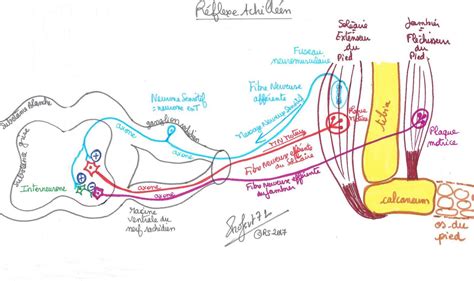 Réflexe Achilléen
Soléaire
Extenseur
du
Pied
Jambier
Fléchisseur
du
Pied
Fuseau
neuromusculaire
Fibre Nerveuse
afférente
Neurone Sensitif
ganglion spinal
Substance blanche
Substance grise
axone
axone
axone
Plaque
motrice
Tibia
Plaque
motrice
Fibre Nerveuse efférente
du soléaire
Fibre Nerveuse efférente
du jambier
Interneurone
Racine
ventrale du
nerf rachidien
@RS2007
calcaneum
os du
pied